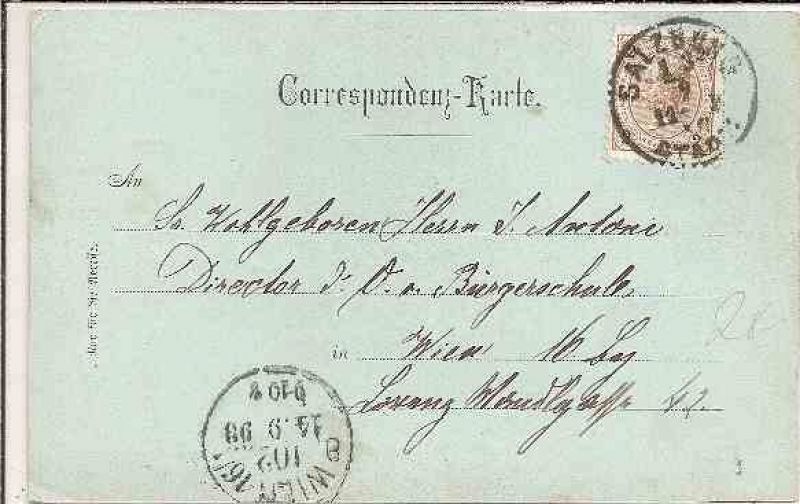 Correspondenz-Karte.
SALZBURG
STADT
An
Sr. Wohlgeboren Herrn J. Antoni
Director d. V. u. Bürgerschule
in Wien 16 Bez
Lorenz Mandlgasse 42.
Nur für die Adresse.
WIEN 16/1
102
15.9.98
B
20